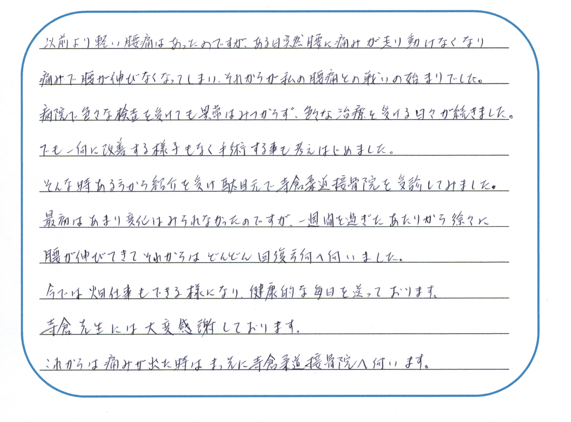 以前より軽い腰痛はあったのですが、ある日突然腰に痛みが走り動けなくなり
痛みで腰が伸びなくなってしまい、それからが私の腰痛との戦いの始まりでした。
病院で色々な検査を受けても異常はみつからず、色々な治療を受ける日々が続きました。
でも一向に改善する様子もなく手術する事も考えはじめました。
そんな時ある方から紹介を受け駄目元で寺倉柔道接骨院を受診してみました。
最初はあまり変化はみられなかったのですが、一週間を過ぎたあたりから徐々に
腰が伸びてきてそれからはどんどん回復方向へ向いました。
今では畑仕事もできる様になり、健康的な毎日を送っております。
寺倉先生には大変感謝しております。
これからは痛みが出た時はまっ先に寺倉柔道接骨院へ伺います。